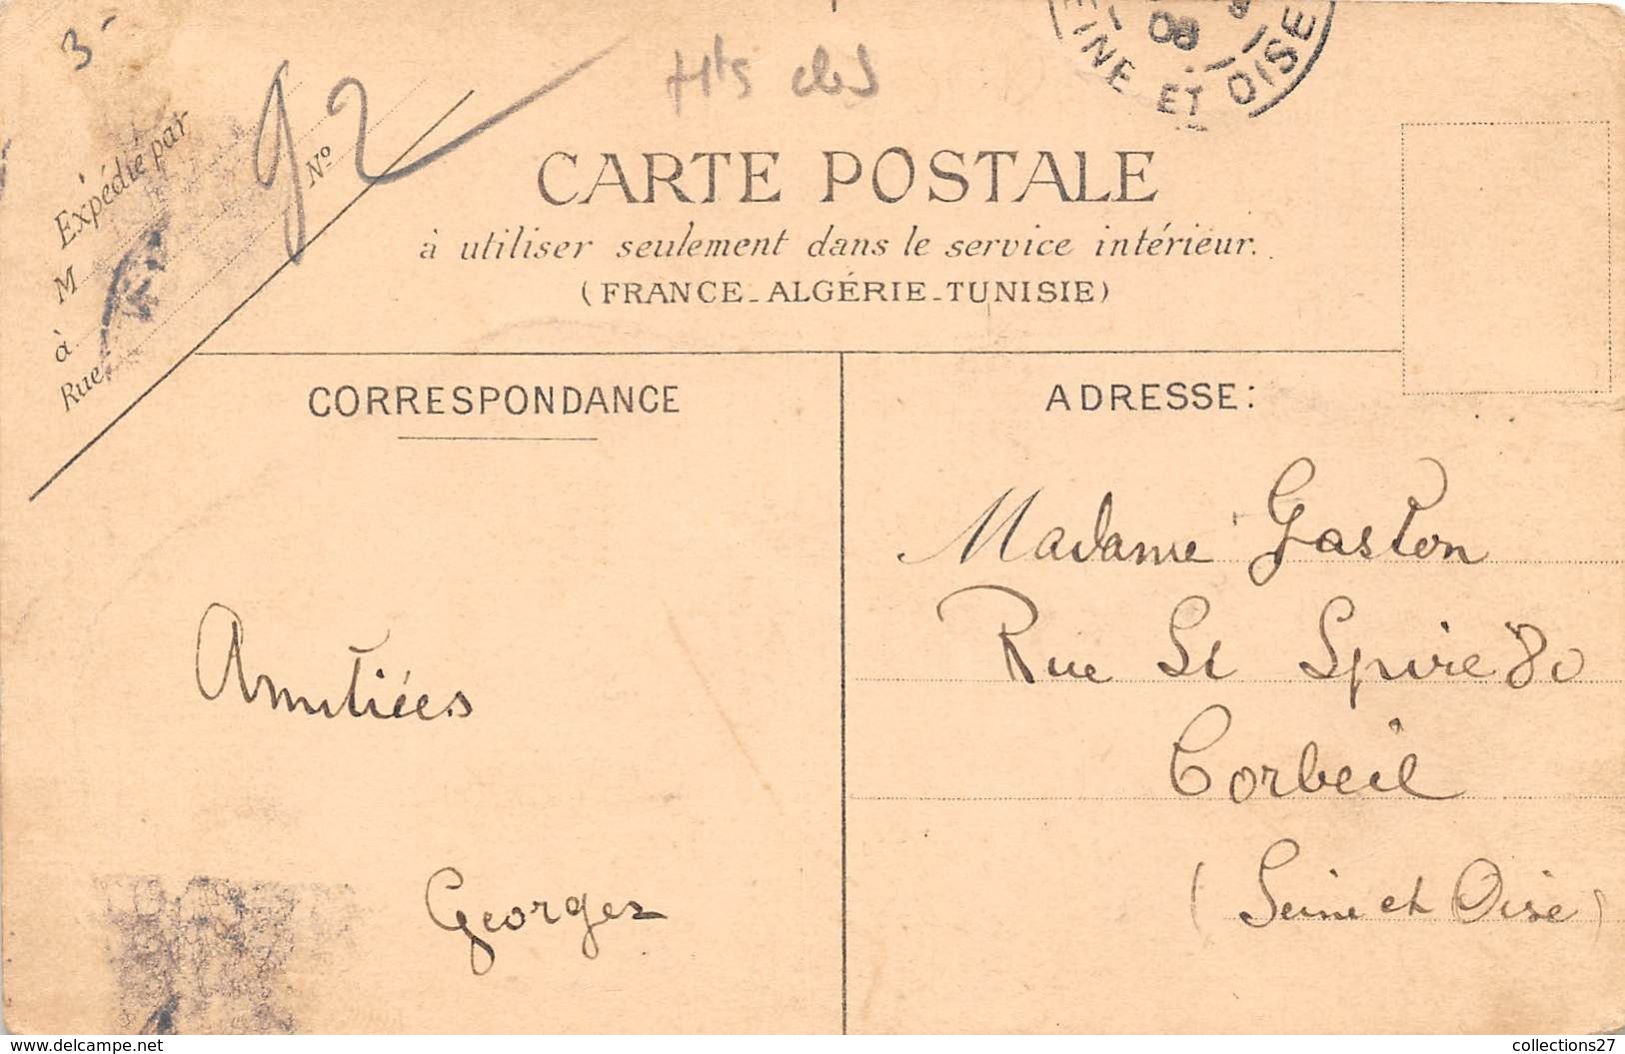 3-
92
Hts de S
08
SEINE ET OISE
Expédié par
M
à
Rue
Nº
CARTE POSTALE
à utiliser seulement dans le service intérieur.
(FRANCE-ALGÉRIE-TUNISIE)
CORRESPONDANCE
ADRESSE:
Madame Gaston
Rue St Spire 80
Corbeil
(Seine et Oise)
Amitiées
Georges
www.delcampe.net
collections27